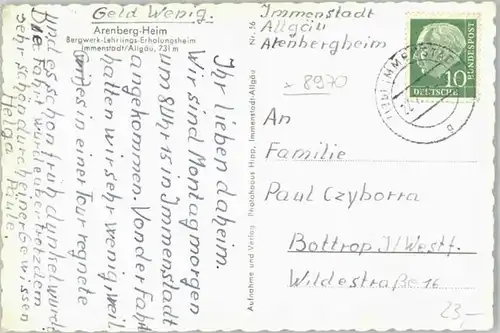 Geld Wenig.
Arenberg-Heim
Bergwerk-Lehrlings-Erholungsheim
Immenstadt/Allgäu, 731 m
Ihr lieben daheim.
Wir sind Montag morgen
um 8 Uhr 15 in Immenstadt
angekommen. Von der Fahrt
hatten wir sehr wenig, weil
es in einer Tour regnete
und es schon früh dunkel wurde
Die Fahrt wurde aber trotzdem
sehr schön durch einer gewissen
Pause.
Helga
Aufnahme und Verlag Photohaus Hipp, Immenstadt-Allgäu
Nr. 56
Immenstadt
Allgäu
Arenbergheim
8970
DEUTSCHE
BUNDESPOST
10
An
Familie
Paul Czyborra
Bottrop i/Westf.
Wildestraße 16
23-